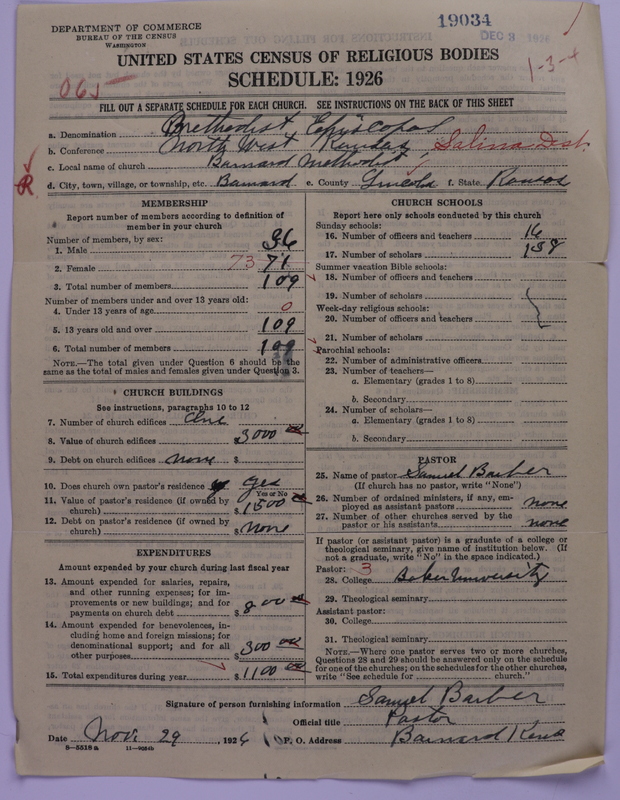 DEPARTMENT OF COMMERCE
BUREAU OF THE CENSUS
WASHINGTON
19034
DEC 3 1926
UNITED STATES CENSUS OF RELIGIOUS BODIES
SCHEDULE: 1926
1-3-4
065
FILL OUT A SEPARATE SCHEDULE FOR EACH CHURCH. SEE INSTRUCTIONS ON THE BACK OF THIS SHEET
a. Denomination Methodist Episcopal
b. Conference North West Kansas Salina Dist.
c. Local name of church Barnard Methodist
R d. City, town, village, or township, etc. Barnard e. County Lincoln f. State Kansas
MEMBERSHIP
Report number of members according to definition of member in your church
Number of members, by sex:
1. Male 36
2. Female 73 71
3. Total number of members 109
Number of members under and over 13 years old:
4. Under 13 years of age 0
5. 13 years old and over 109
6. Total number of members 109
NOTE.—The total given under Question 6 should be the
same as the total of males and females given under Question 3.
CHURCH BUILDINGS
See instructions, paragraphs 10 to 12
7. Number of church edifices One
8. Value of church edifices $3000 00
9. Debt on church edifices none $
10. Does church own pastor's residence yes
Yes or No
11. Value of pastor's residence (if owned by
church) $1500
12. Debt on pastor's residence (if owned by
church) $none
EXPENDITURES
Amount expended by your church during last fiscal year
13. Amount expended for salaries, repairs,
and other running expenses; for im-
provements or new buildings; and for
payments on church debt $800 00
14. Amount expended for benevolences, in-
cluding home and foreign missions; for
denominational support; and for all
other purposes $300 00
15. Total expenditures during year $1100 00
CHURCH SCHOOLS
Report here only schools conducted by this church
Sunday schools:
16. Number of officers and teachers 16
17. Number of scholars 138
Summer vacation Bible schools:
18. Number of officers and teachers
19. Number of scholars
Week-day religious schools:
20. Number of officers and teachers
21. Number of scholars
Parochial schools:
22. Number of administrative officers
23. Number of teachers—
a. Elementary (grades 1 to 8)
b. Secondary
24. Number of scholars—
a. Elementary (grades 1 to 8)
b. Secondary
PASTOR
25. Name of pastor Samuel Barber
(If church has no pastor, write "None")
26. Number of ordained ministers, if any, em-
ployed as assistant pastors none
27. Number of other churches served by the
pastor or his assistants none
If pastor (or assistant pastor) is a graduate of a college or
theological seminary, give name of institution below. (If
not a graduate, write "No" in the space indicated.)
Pastor: 3
28. College Baker University
29. Theological seminary
Assistant pastor:
30. College
31. Theological seminary
NOTE.—Where one pastor serves two or more churches,
Questions 28 and 29 should be answered only on the schedule
for one of the churches; on the schedules for the other churches,
write "See schedule for church."
Signature of person furnishing information Samuel Barber
Official title Pastor
Date Nov. 29, 1926 P. O. Address Barnard Kans
8-5518a 11-9054b